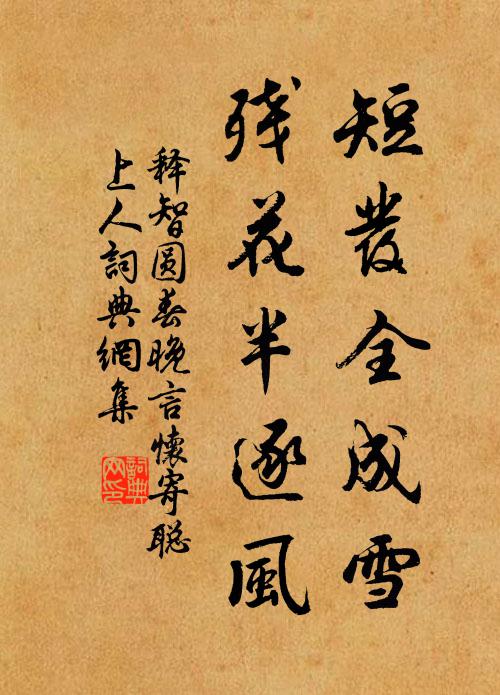 短發全成雪
残花半逐風
释智圓春晚言懷寄聪
上人詞典網集
詞典
网印